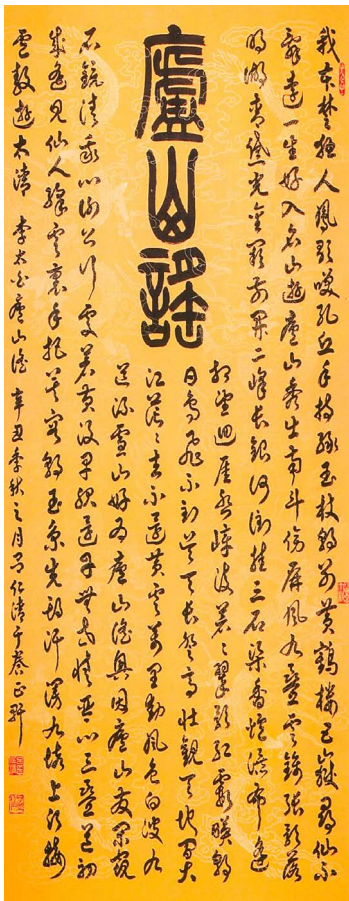 廬山謠
我本楚狂人鳳歌笑孔丘手持綠玉杖朝別黃鶴樓五嶽尋仙不
辭遠一生好入名山遊廬山秀出南斗傍屏風九疊雲錦張影落
明湖青黛光金闕前開二峰長銀河倒挂三石梁香爐瀑布遙
相望迴崖沓嶂凌蒼々翠影紅霞映朝
日鳥飛不到吳天長登高壯觀天地間大
江茫々去不還黃雲萬里動風色白波九
道流雪山好為廬山謠興因廬山發閑窺
石鏡清我心謝公行處蒼苔沒早服還丹無世情琴心三疊道初
成遙見仙人綵雲裏手把芙蓉朝玉京先期汗漫九垓上願接
盧敖遊太清 李太白廬山謠 辛丑季秋之月 仁清于